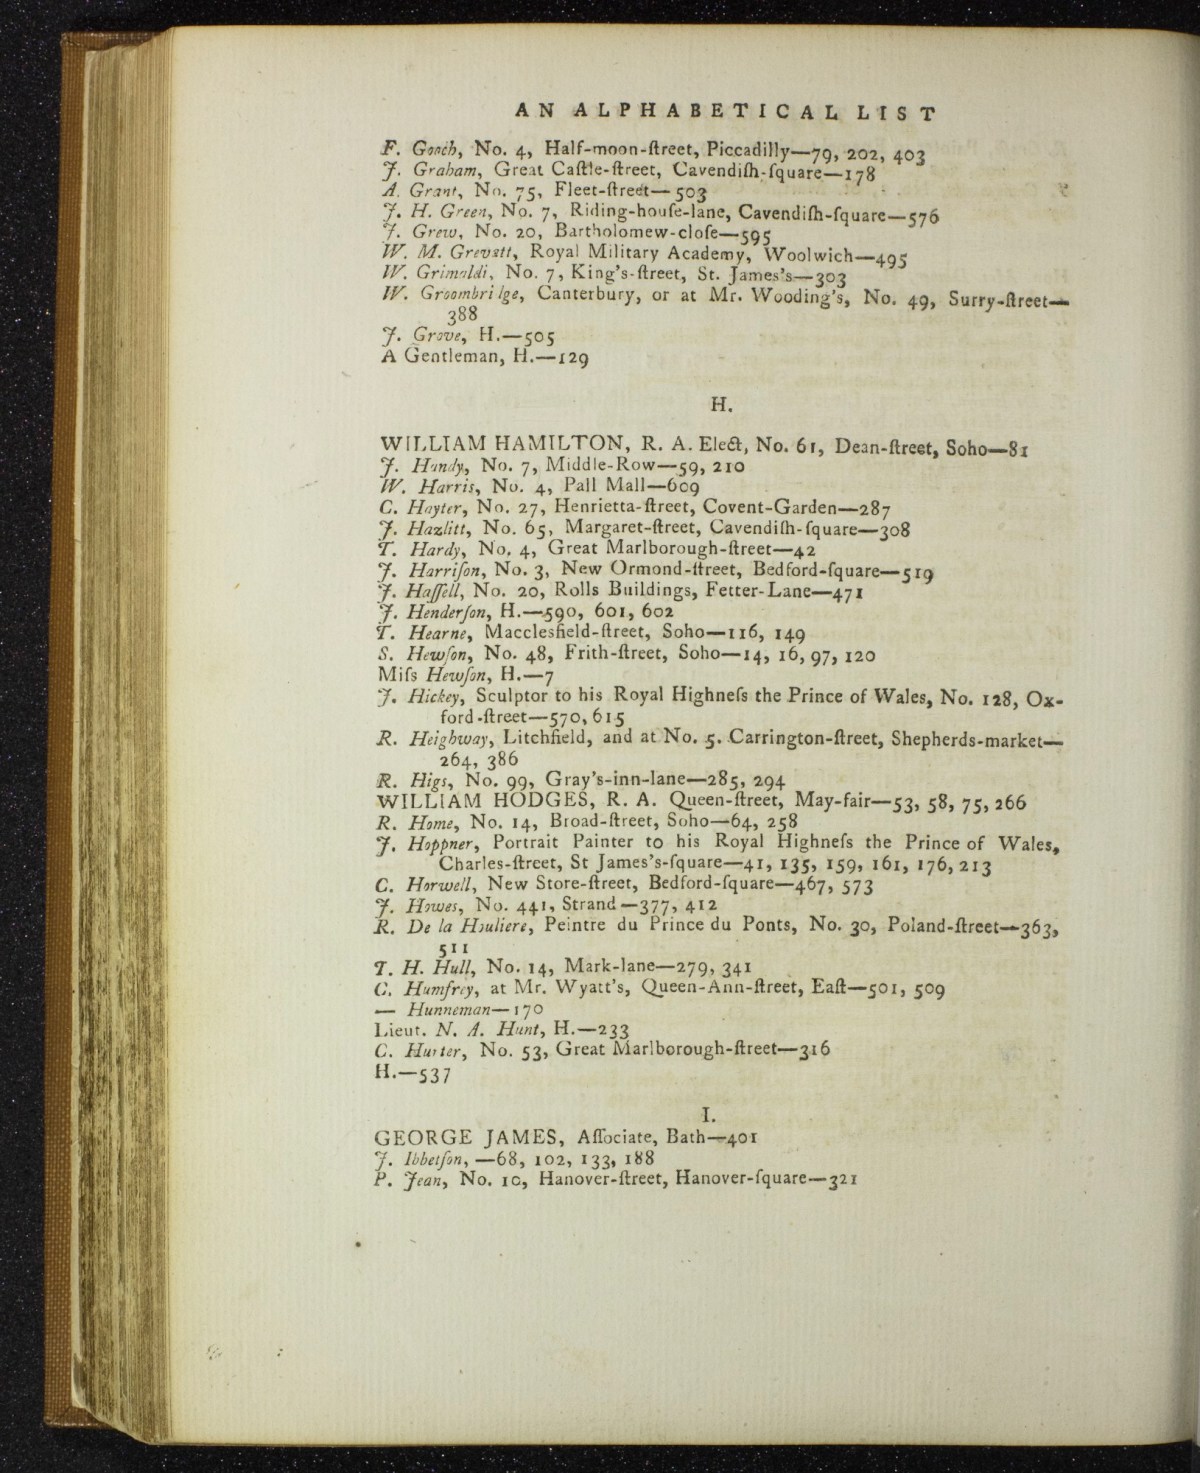 AN ALPHABETICAL LIST
F. Gooch, No. 4, Half-moon-ſtreet, Piccadilly—79, 202, 403
J. Graham, Great Caſtle-ſtreet, Cavendiſh-ſquare—178
A. Grant, No. 75, Fleet-ſtreet—503
J. H. Green, No. 7, Riding-houſe-lane, Cavendiſh-ſquare—576
J. Grew, No. 20, Bartholomew-cloſe—595
W. M. Grevatt, Royal Military Academy, Woolwich—495
W. Grimaldi, No. 7, King's-ſtreet, St. James's—303
W. Groombridge, Canterbury, or at Mr. Wooding's, No. 49, Surry-ſtreet—
388
J. Grove, H.—505
A Gentleman, H.—129
H.
WILLIAM HAMILTON, R. A. Elect, No. 61, Dean-ſtreet, Soho—81
J. Handy, No. 7, Middle-Row—59, 210
W. Harris, No. 4, Pall Mall—609
C. Hayter, No. 27, Henrietta-ſtreet, Covent-Garden—287
J. Hazlitt, No. 65, Margaret-ſtreet, Cavendiſh-ſquare—308
T. Hardy, No. 4, Great Marlborough-ſtreet—42
J. Harriſon, No. 3, New Ormond-ſtreet, Bedford-ſquare—519
J. Haſſell, No. 20, Rolls Buildings, Fetter-Lane—471
J. Henderſon, H.—590, 601, 602
T. Hearne, Macclesfield-ſtreet, Soho—116, 149
S. Hewſon, No. 48, Frith-ſtreet, Soho—14, 16, 97, 120
Miſs Hewſon, H.—7
J. Hickey, Sculptor to his Royal Highneſs the Prince of Wales, No. 128, Ox-
ford-ſtreet—570, 615
R. Heighway, Litchfield, and at No. 5. Carrington-ſtreet, Shepherds-market—
264, 386
R. Higs, No. 99, Gray's-inn-lane—285, 294
WILLIAM HODGES, R. A. Queen-ſtreet, May-fair—53, 58, 75, 266
R. Home, No. 14, Broad-ſtreet, Soho—64, 258
J. Hoppner, Portrait Painter to his Royal Highneſs the Prince of Wales,
Charles-ſtreet, St James's-ſquare—41, 135, 159, 161, 176, 213
C. Horwell, New Store-ſtreet, Bedford-ſquare—467, 573
J. Howes, No. 441, Strand—377, 412
R. De la Houliere, Peintre du Prince du Ponts, No. 30, Poland-ſtreet—363,
511
T. H. Hull, No. 14, Mark-lane—279, 341
C. Humfrey, at Mr. Wyatt's, Queen-Ann-ſtreet, Eaſt—501, 509
— Hunneman—170
Lieut. N. A. Hunt, H.—233
C. Hunter, No. 53, Great Marlborough-ſtreet—316
H.—537
I.
GEORGE JAMES, Aſſociate, Bath—401
J. Ibbetſon, —68, 102, 133, 188
P. Jean, No. 10, Hanover-ſtreet, Hanover-ſquare—321